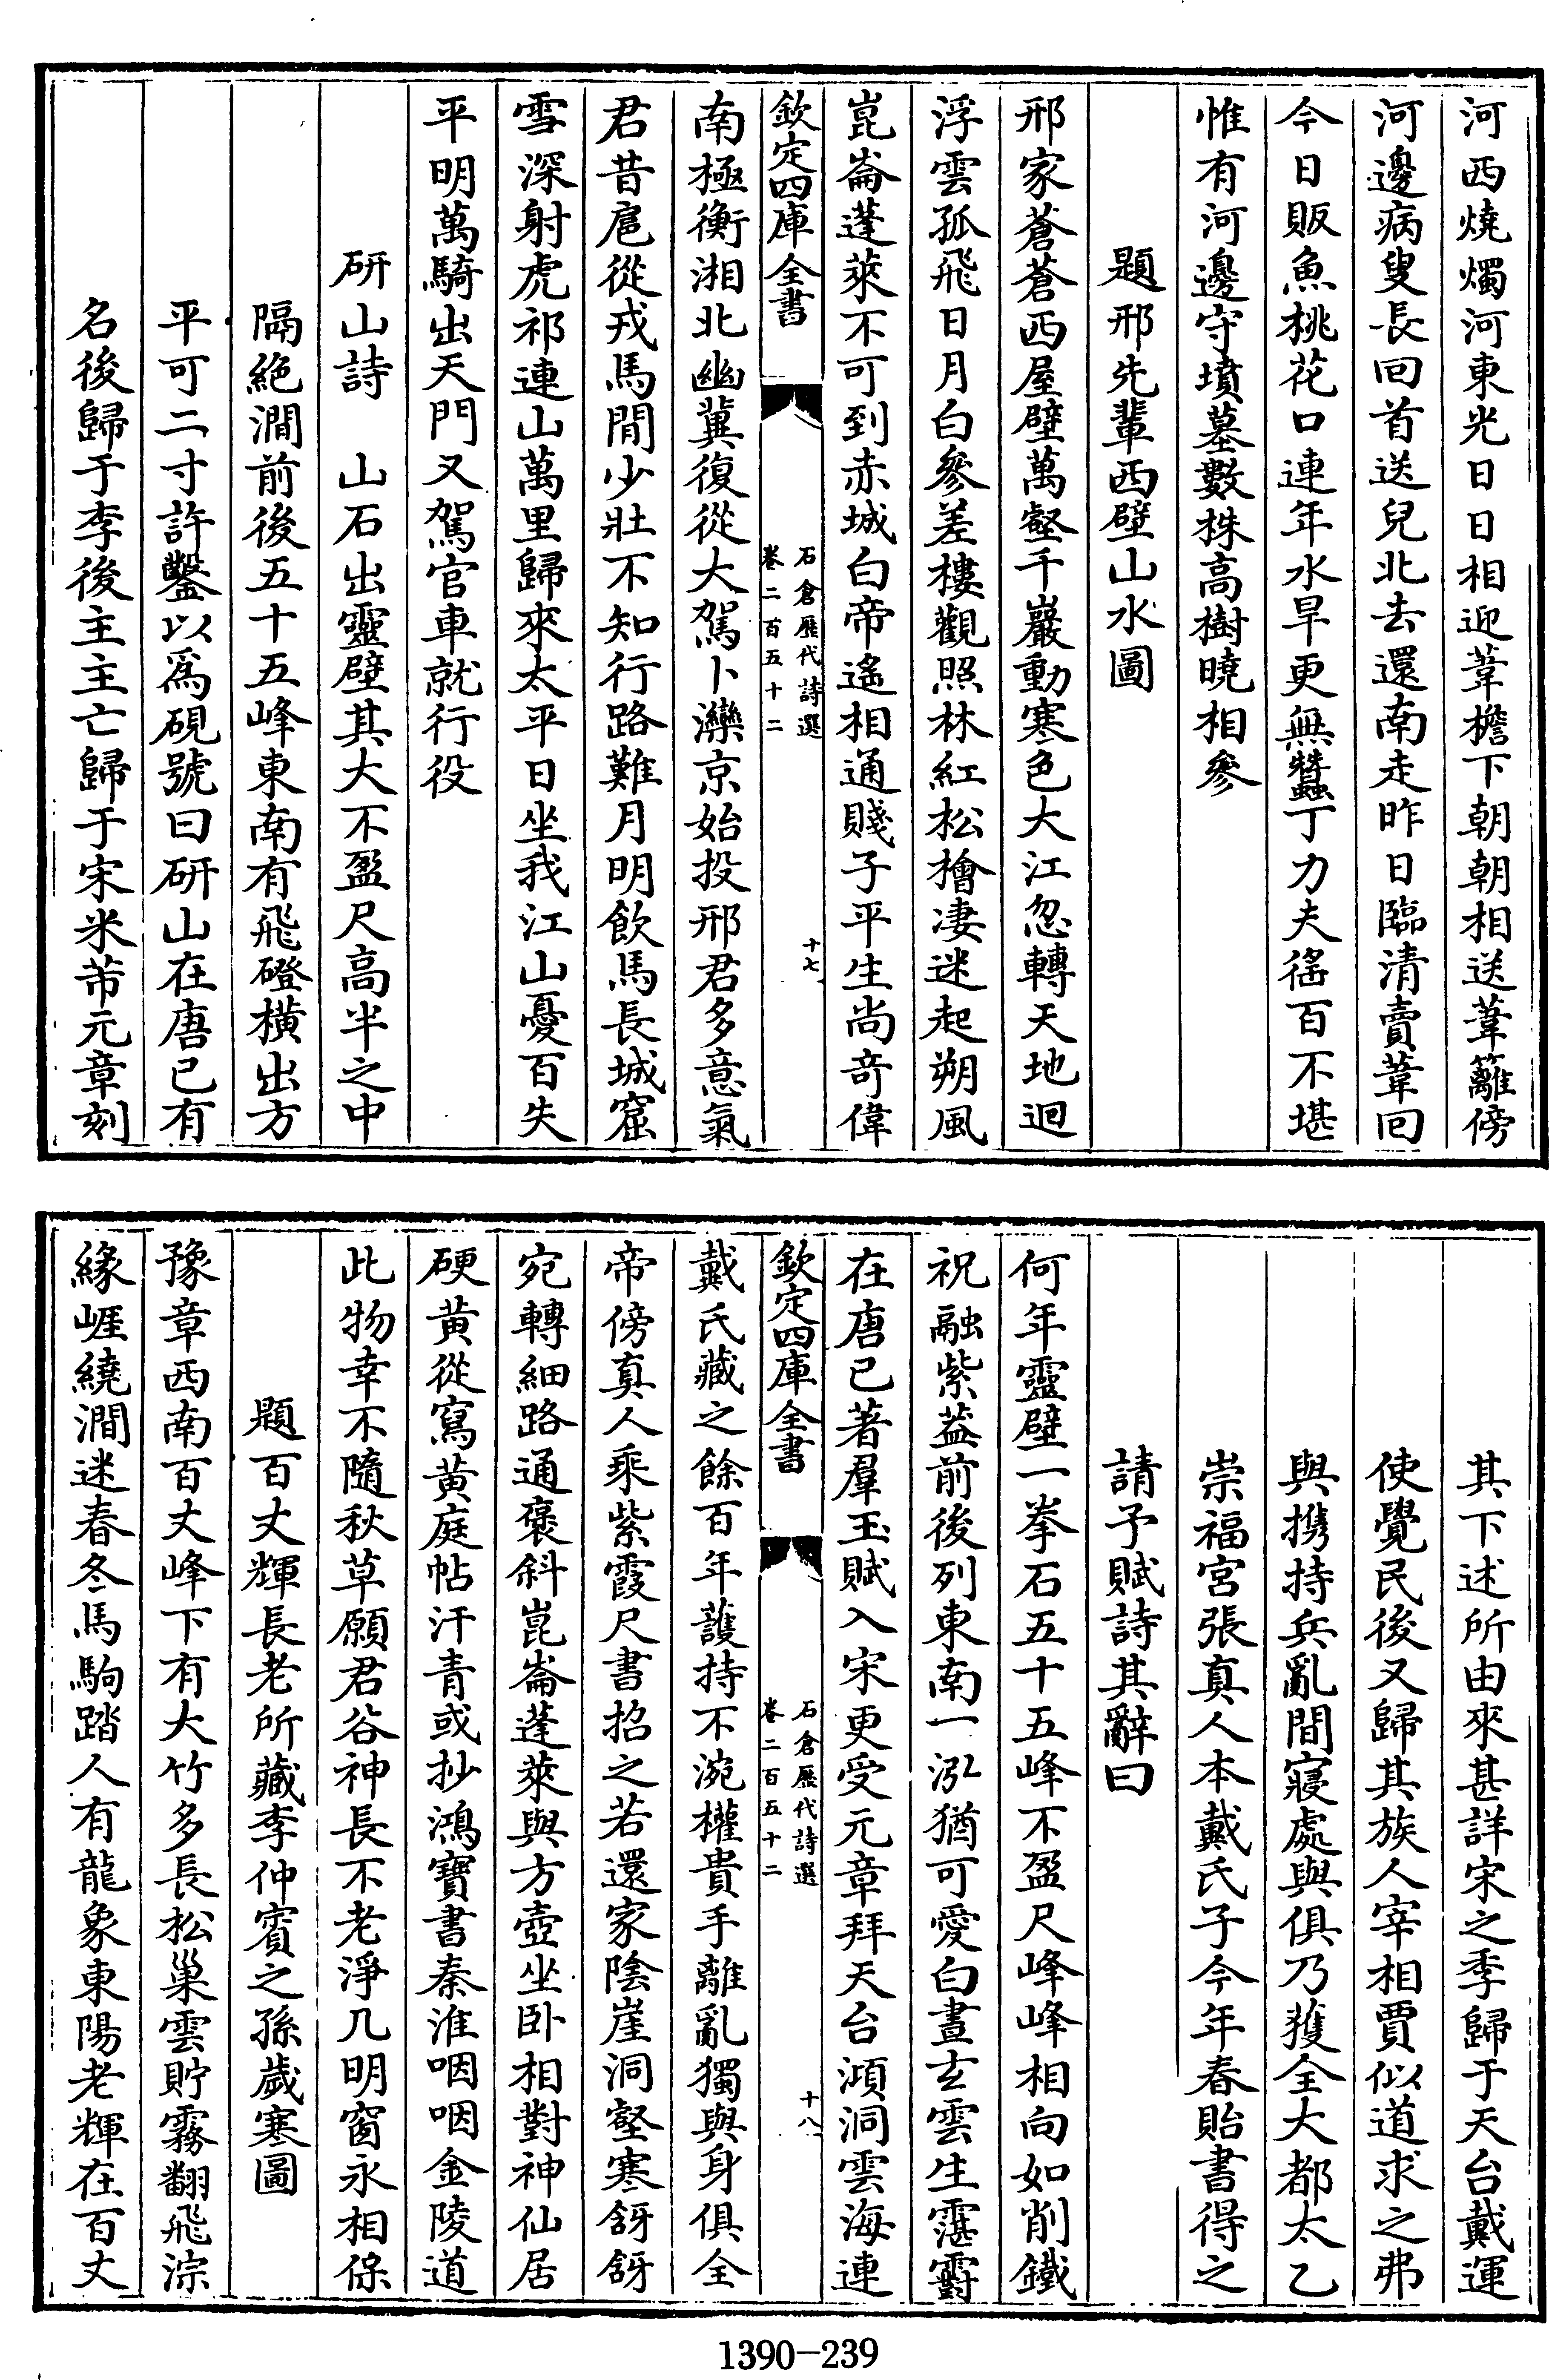 河西燒燭河東光日日相迎葦檐下朝朝相送葦籬傍
河邊病叟長回首送兒北去還南走昨日臨清賣葦回
今日販魚桃花口連年水旱更無蠶丁力夫徭百不堪
惟有河邊守墳墓數株高樹曉相參
題邢先輩西壁山水圖
邢家蒼蒼西屋壁萬壑千巖動寒色大江忽轉天地迴
浮雲孤飛日月白參差樓觀照林紅松檜淒迷起朔風
崑崙蓬萊不可到赤城白帝遙相通賤子平生尚奇偉
欽定四庫全書
石倉歷代詩選
卷二百五十二
十七
南極衡湘北幽冀復從大駕卜灤京始投邢君多意氣
君昔扈從戎馬間少壯不知行路難月明飲馬長城窟
雪深射虎祁連山萬里歸來太平日坐我江山憂百失
平明萬騎出天門又駕官車就行役
研山詩　山石出靈壁其大不盈尺高半之中
隔絶澗前後五十五峰東南有飛磴橫出方
平可二寸許鑿以為硯號曰研山在唐已有
名後歸于李後主主亡歸于宋米芾元章刻
其下述所由來甚詳宋之季歸于天台戴運
使覺民後又歸其族人宰相賈似道求之弗
與攜持兵亂間寢處與俱乃獲全大都太乙
崇福宮張真人本戴氏子今年春貽書得之
請予賦詩其辭曰
何年靈壁一拳石五十五峰不盈尺峰峰相向如削鐵
祝融紫葢前後列東南一泓猶可愛白晝玄雲生霮䨴
在唐已著羣玉賦入宋更受元章拜天台澒洞雲海連
欽定四庫全書
石倉歷代詩選
卷二百五十二
十八
戴氏藏之餘百年護持不涴權貴手離亂獨與身俱全
帝傍真人乘紫霞尺書招之若還家陰崖洞壑寒谺谺
宛轉細路通褒斜崑崙蓬萊與方壺坐卧相對神仙居
硬黃從寫黃庭帖汗青或抄鴻寶書秦淮咽咽金陵道
此物幸不隨秋草願君谷神長不老淨几明窗永相保
題百丈輝長老所藏李仲賓之孫歲寒圖
豫章西南百丈峰下有大竹多長松巢雲貯霧翻飛淙
緣崕繞澗迷春冬馬駒踏人有龍象東陽老輝在百丈
1390—239